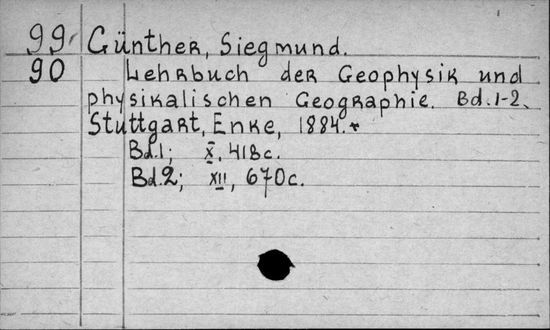 99 Günther, Siegmund.
90 Lehrbuch der Geophysik und
physikalischen Geographie. Bd.1-2.
Stuttgart, Enke, 1884.*
Bd.1; X, 418c.
Bd.2; XII, 670c.